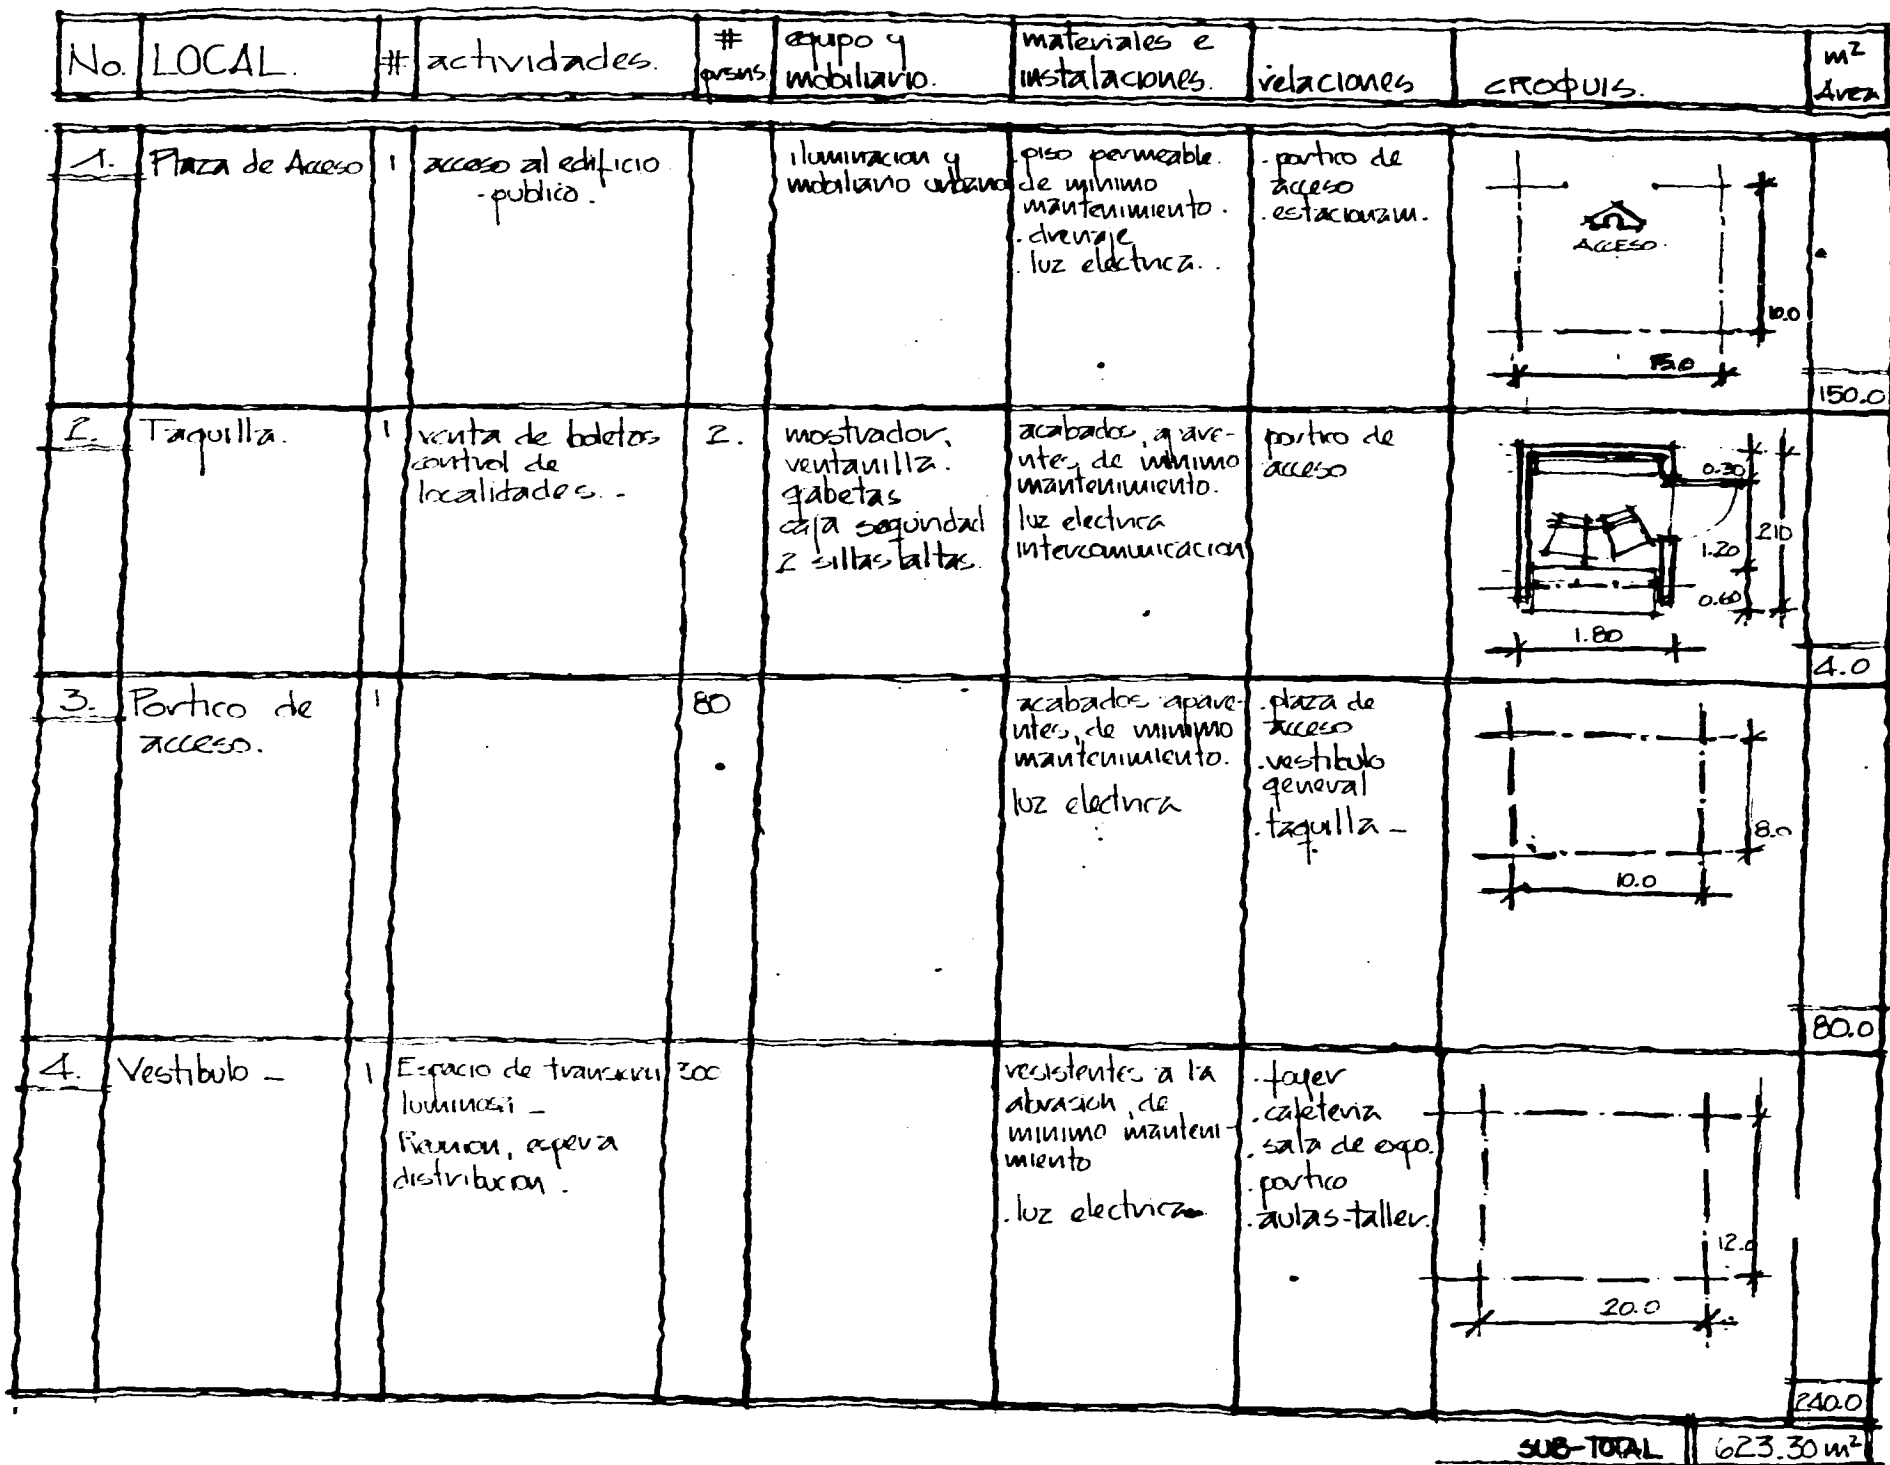 No. LOCAL. # actividades. # prsns. equipo y mobiliario. materiales e instalaciones. relaciones CROQUIS. m² Area
1. Plaza de Acceso 1
acceso al edificio
- publico.
iluminacion y
mobiliario urbano
. piso permeable.
de minimo
mantenimiento.
. drenaje
. luz electrica..
. portico de
acceso
. estacionam.
ACCESO.
10.0
15.0
150.0
2. Taquilla. 1
venta de boletos
control de
localidades. -
2.
mostrador,
ventanilla.
gabetas
caja seguridad
2 sillas altas.
acabados, apare-
ntes, de minimo
mantenimiento.
luz electrica
intercomunicacion
portico de
acceso
0.30
1.20
210
0.60
1.80
4.0
3. Portico de
acceso.
1
80
acabados apare-
ntes, de minimo
mantenimiento.
luz electrica
. plaza de
acceso
. vestibulo
general
. taquilla -
8.0
10.0
80.0
4. Vestibulo - 1
Espacio de
luminosa -
Reunion, espera
distribucion.
resistentes a la
abrasion, de
minimo manteni-
miento
. luz electrica
. foyer
. cafeteria
. sala de expo.
. portico
. aulas-taller.
12.0
20.0
240.0
SUB-TOTAL 623.30 m²